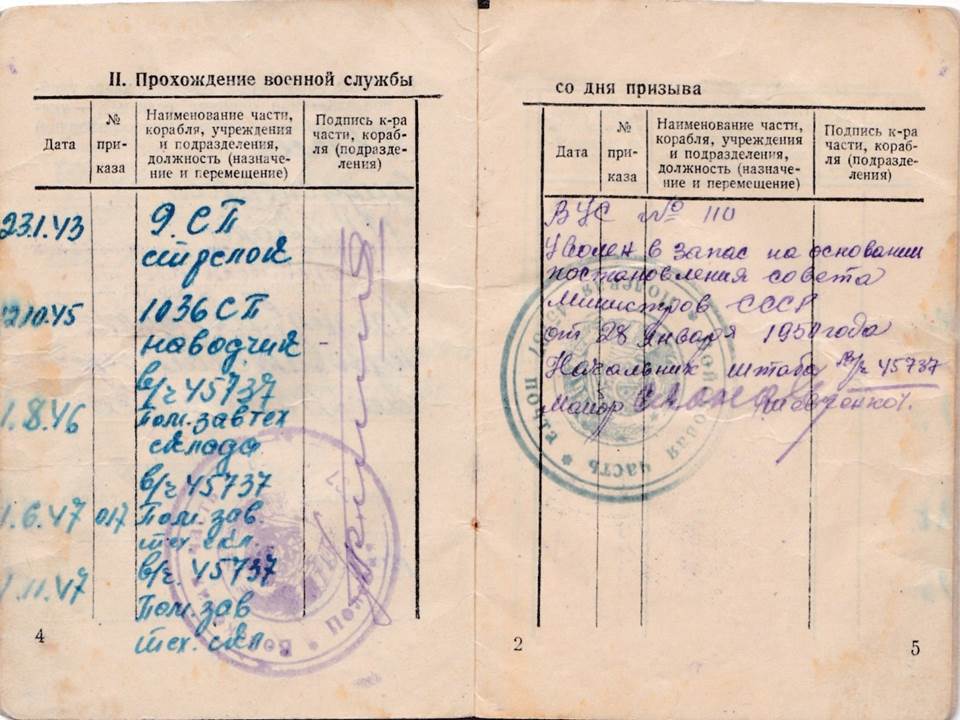 II. Прохождение военной службы
Дата
№
при-
каза
Наименование части,
корабля, учреждения
и подразделения,
должность (назначе-
ние и перемещение)
Подпись к-ра
части, кораб-
ля (подразде-
ления)
23.1.43
9. СП
стрелок
2.10.45
1036 СП
наводчик
в/ч 45737
1.8.46
Пом. завтех
склада
в/ч 45737
1.6.47 017 Пом. зав.
тех. скл.
в/ч. 45737
1.11.47
Пом. зав
тех. скл.
4
со дня призыва
Дата
№
при-
каза
Наименование части,
корабля, учреждения
и подразделения,
должность (назначе-
ние и перемещение)
Подпись к-ра
части, кораб-
ля (подразде-
ления)
ВУС № 110
Уволен в запас на основании
постановления совета
Министров СССР
от 28 января 1950 года
Начальник штаба в/ч 45737
Майор
2
5